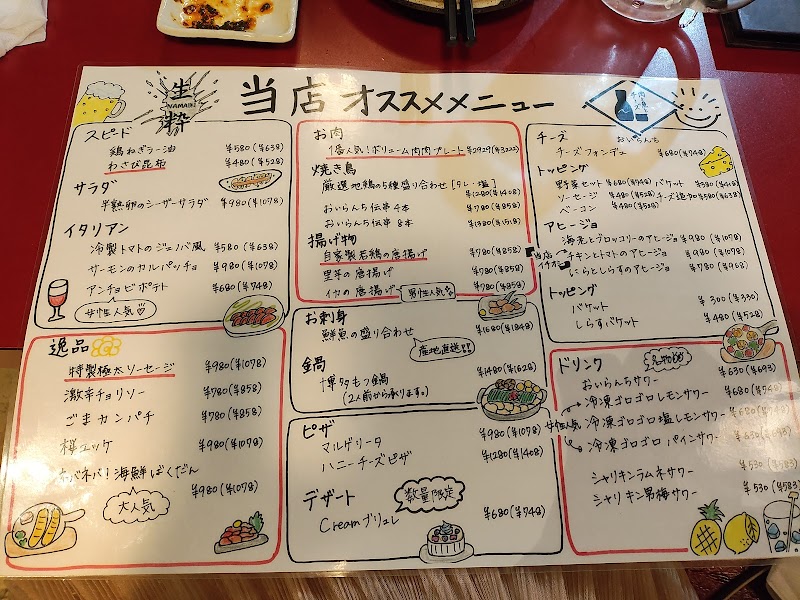 生粋
NAMAIKI
当店オススメメニュー
スピード
鶏ねぎラー油 ¥580(¥638)
わさび昆布 ¥480(¥528)
サラダ
半熟卵のシーザーサラダ ¥980(¥1078)
イタリアン
冷製トマトのジェノバ風 ¥580(¥638)
サーモンのカルパッチョ ¥980(¥1078)
アンチョビポテト ¥680(¥748)
女性人気♡
逸品
特製極太ソーセージ ¥980(¥1078)
激辛チョリソー ¥780(¥858)
ごまカンパチ ¥780(¥858)
桜ユッケ ¥980(¥1078)
ネバネバ!海鮮ばくだん ¥980(¥1078)
大人気
お肉
1番人気!ボリューム肉肉プレート ¥2929(¥3222)
焼き鳥
厳選地鶏の5種盛り合わせ[タレ・塩] ¥1280(¥1408)
おいらんち伝串4本 ¥780(¥858)
おいらんち伝串8本 ¥1380(¥1518)
揚げ物
自家製若鶏の唐揚げ ¥780(¥858)
里芋の唐揚げ ¥780(¥858)
イカの唐揚げ ¥780(¥858)
男性人気
お刺身
鮮魚の盛り合わせ ¥1680(¥1848)
産地直送!!
鍋
博多もつ鍋 ¥1480(¥1628)
(2人前から承ります。)
ピザ
マルゲリータ ¥980(¥1078)
ハニーチーズピザ ¥1280(¥1408)
デザート
数量限定
Creamブリュレ ¥680(¥748)
チーズ
おいらんち
チーズフォンデュ ¥680(¥748)
トッピング
野菜セット ¥680(¥748) バケット ¥580(¥638)
ソーセージ ¥480(¥528) チーズ追加 ¥580(¥638)
ベーコン ¥480(¥528)
アヒージョ
海老とブロッコリーのアヒージョ ¥980(¥1078)
当店イチオシ
チキンとトマトのアヒージョ ¥980(¥1078)
いくらとしらすのアヒージョ ¥1780(¥1963)
トッピング
バケット ¥300(¥330)
しらすバケット ¥480(¥528)
ドリンク
おいらんちサワー ¥630(¥693)
女性人気
冷凍ゴロゴロレモンサワー ¥680(¥748)
冷凍ゴロゴロ塩レモンサワー ¥680(¥748)
冷凍ゴロゴロパインサワー
シャリキンラムネサワー ¥530(¥583)
シャリキン男梅サワー ¥530(¥583)